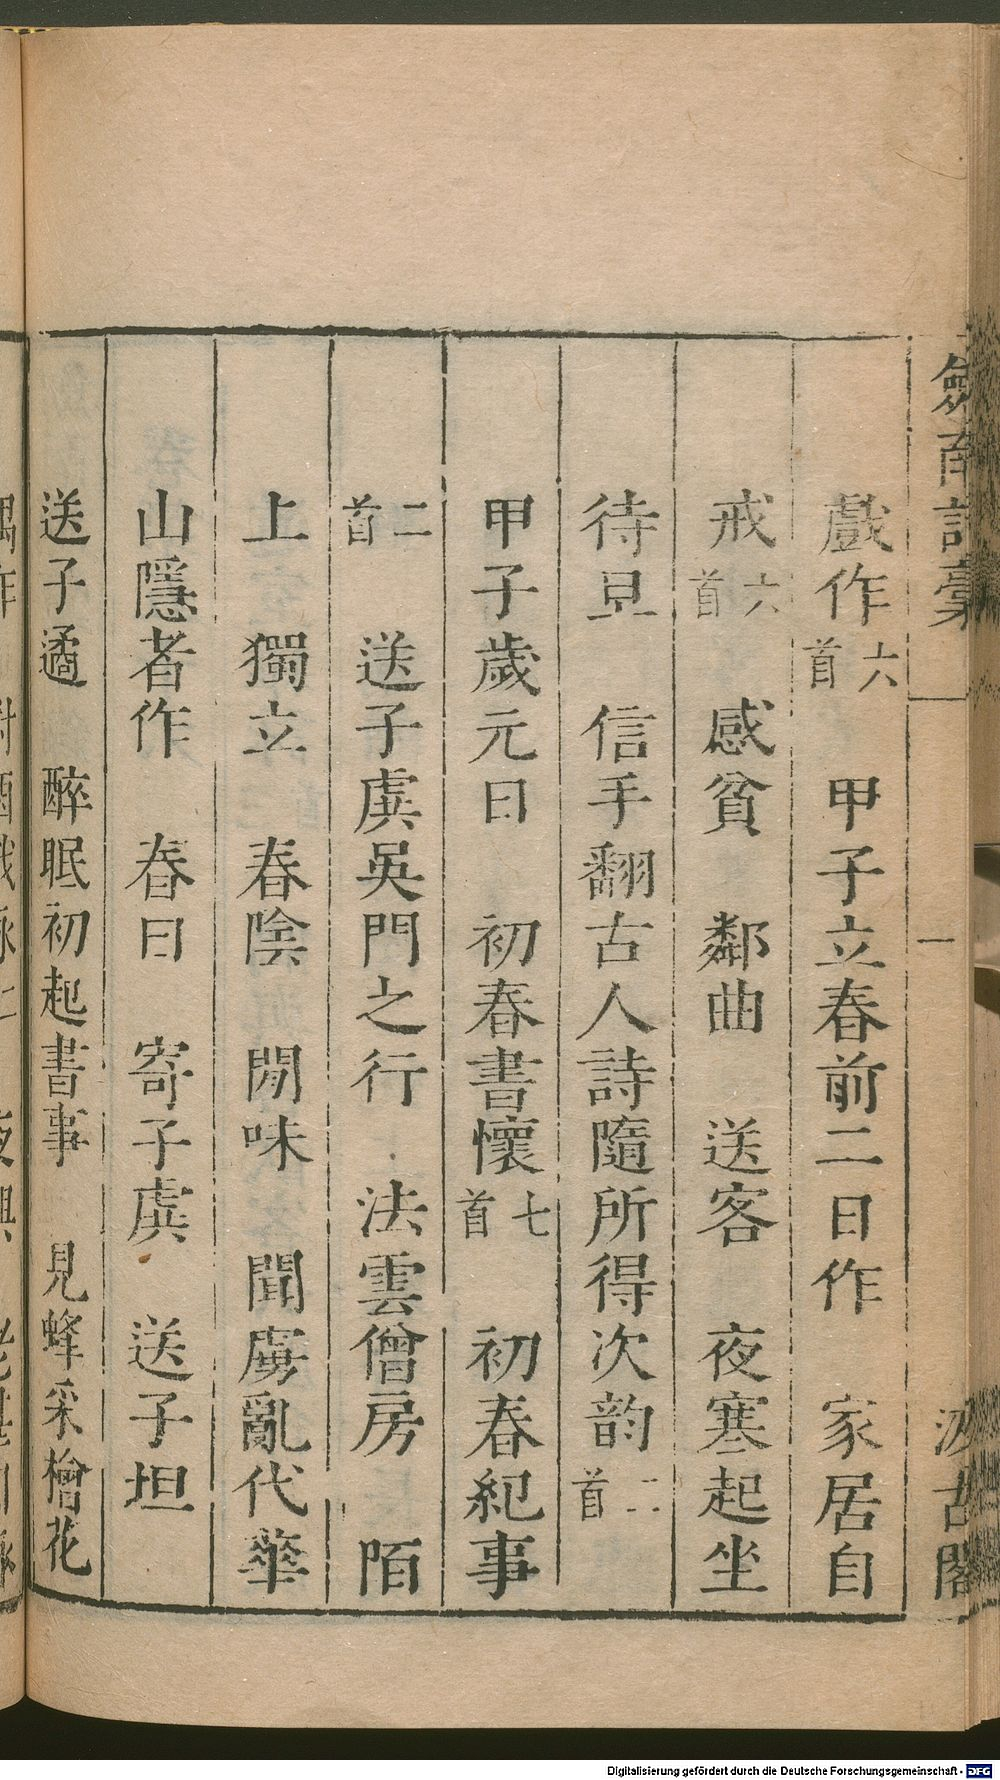 劍南詩稾 一 汲古閣
戲作六首 甲子立春前二日作 家居自
戒六首 感貧 鄰曲 送客 夜寒起坐
待旦 信手翻古人詩隨所得次韵二首
甲子歲元日 初春書懷七首 初春紀事
二首 送子虡吳門之行 法雲僧房 陌
上 獨立 春陰 閒味 聞虜亂代華
山隱者作 春日 寄子虡 送子坦
送子遹 醉眠初起書事 見蜂采檜花
Digitalisierung gefördert durch die Deutsche Forschungsgemeinschaft - DFG